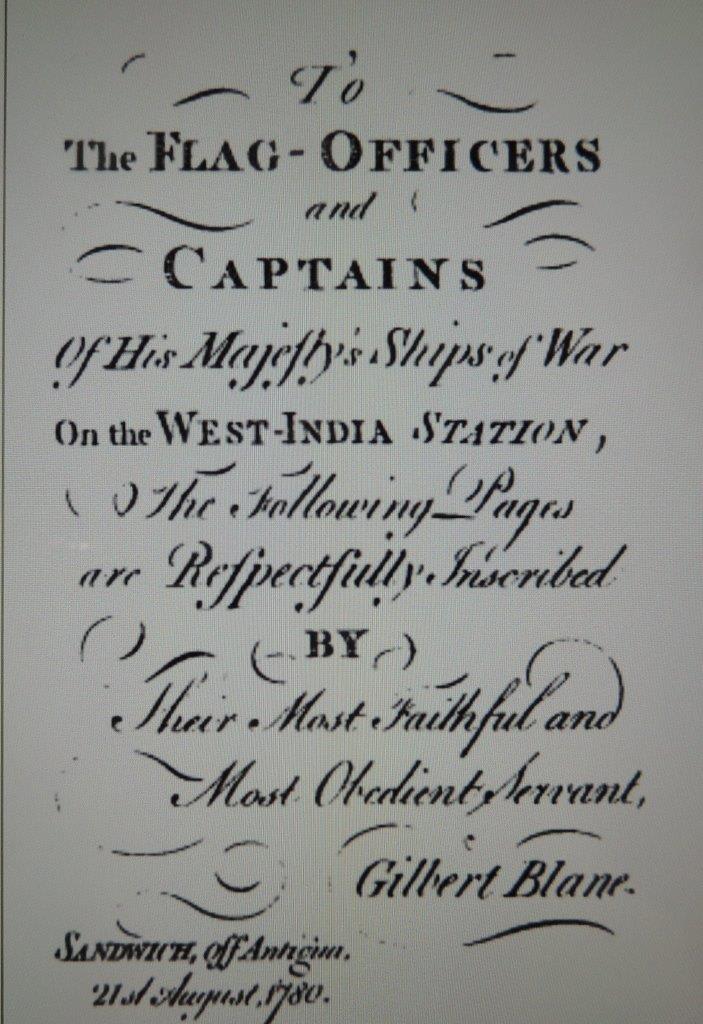 To
The FLAG-OFFICERS
and
CAPTAINS
Of His Majeſty's Ships of War
On the WEST-INDIA STATION,
The Following Pages
are Reſpectfully Inscribed
BY
Their Most Faithful and
Most Obedient Servant,
Gilbert Blane.
SANDWICH, off Antigua.
21st August, 1780.